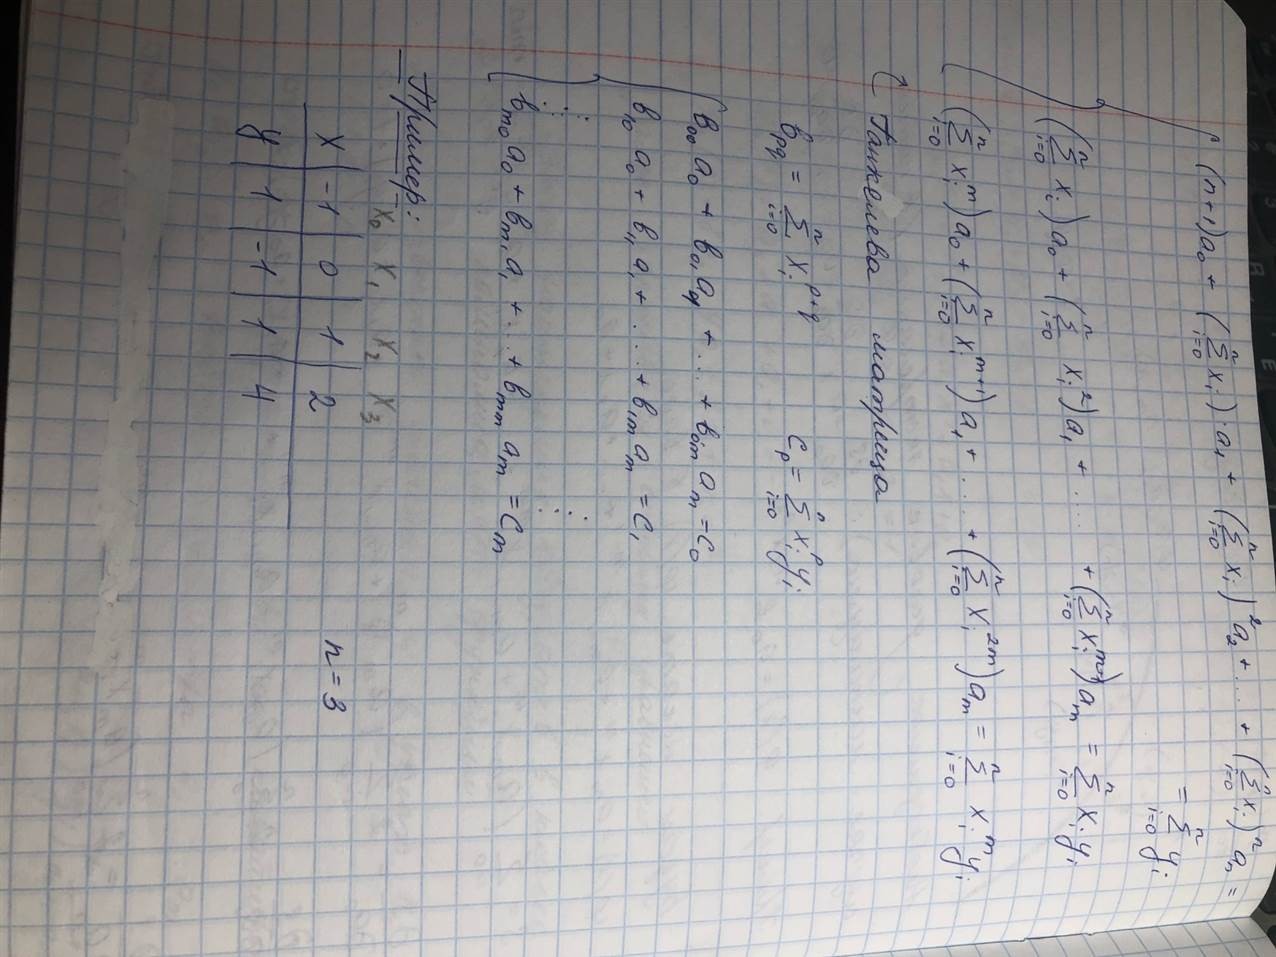 (n+1)a₀ + (Σᵢ₌₀ⁿ xᵢ)·a₁ + (Σᵢ₌₀ⁿ xᵢ)² a₂ + .... + (Σᵢ₌₀ⁿ xᵢ)ⁿ aₙ =
= Σᵢ₌₀ⁿ yᵢ
(Σᵢ₌₀ⁿ xᵢ)a₀ + (Σᵢ₌₀ⁿ xᵢ²)a₁ + ..... + (Σᵢ₌₀ⁿ xᵢᵐ⁺¹)aₘ = Σᵢ₌₀ⁿ xᵢyᵢ
(Σᵢ₌₀ⁿ xᵢᵐ)a₀ + (Σᵢ₌₀ⁿ xᵢᵐ⁺¹)a₁ + .... + (Σᵢ₌₀ⁿ xᵢ²ᵐ)aₘ = Σᵢ₌₀ⁿ xᵢᵐyᵢ
↳ Ганкелева матрица
b_pq = Σᵢ₌₀ⁿ xᵢ^(p+q) c_p = Σᵢ₌₀ⁿ xᵢ^p yᵢ
b₀₀a₀ + b₀₁a₁ + ... + b₀ₘaₘ = c₀
b₁₀a₀ + b₁₁a₁ + .... + b₁ₘaₘ = c₁
⋮ ⋮
bₘ₀a₀ + bₘ₁a₁ + ... + bₘₘaₘ = cₘ
Пример:
x₀ x₁ x₂ x₃
x | -1 | 0 | 1 | 2 n = 3
y | 1 | -1 | 1 | 4